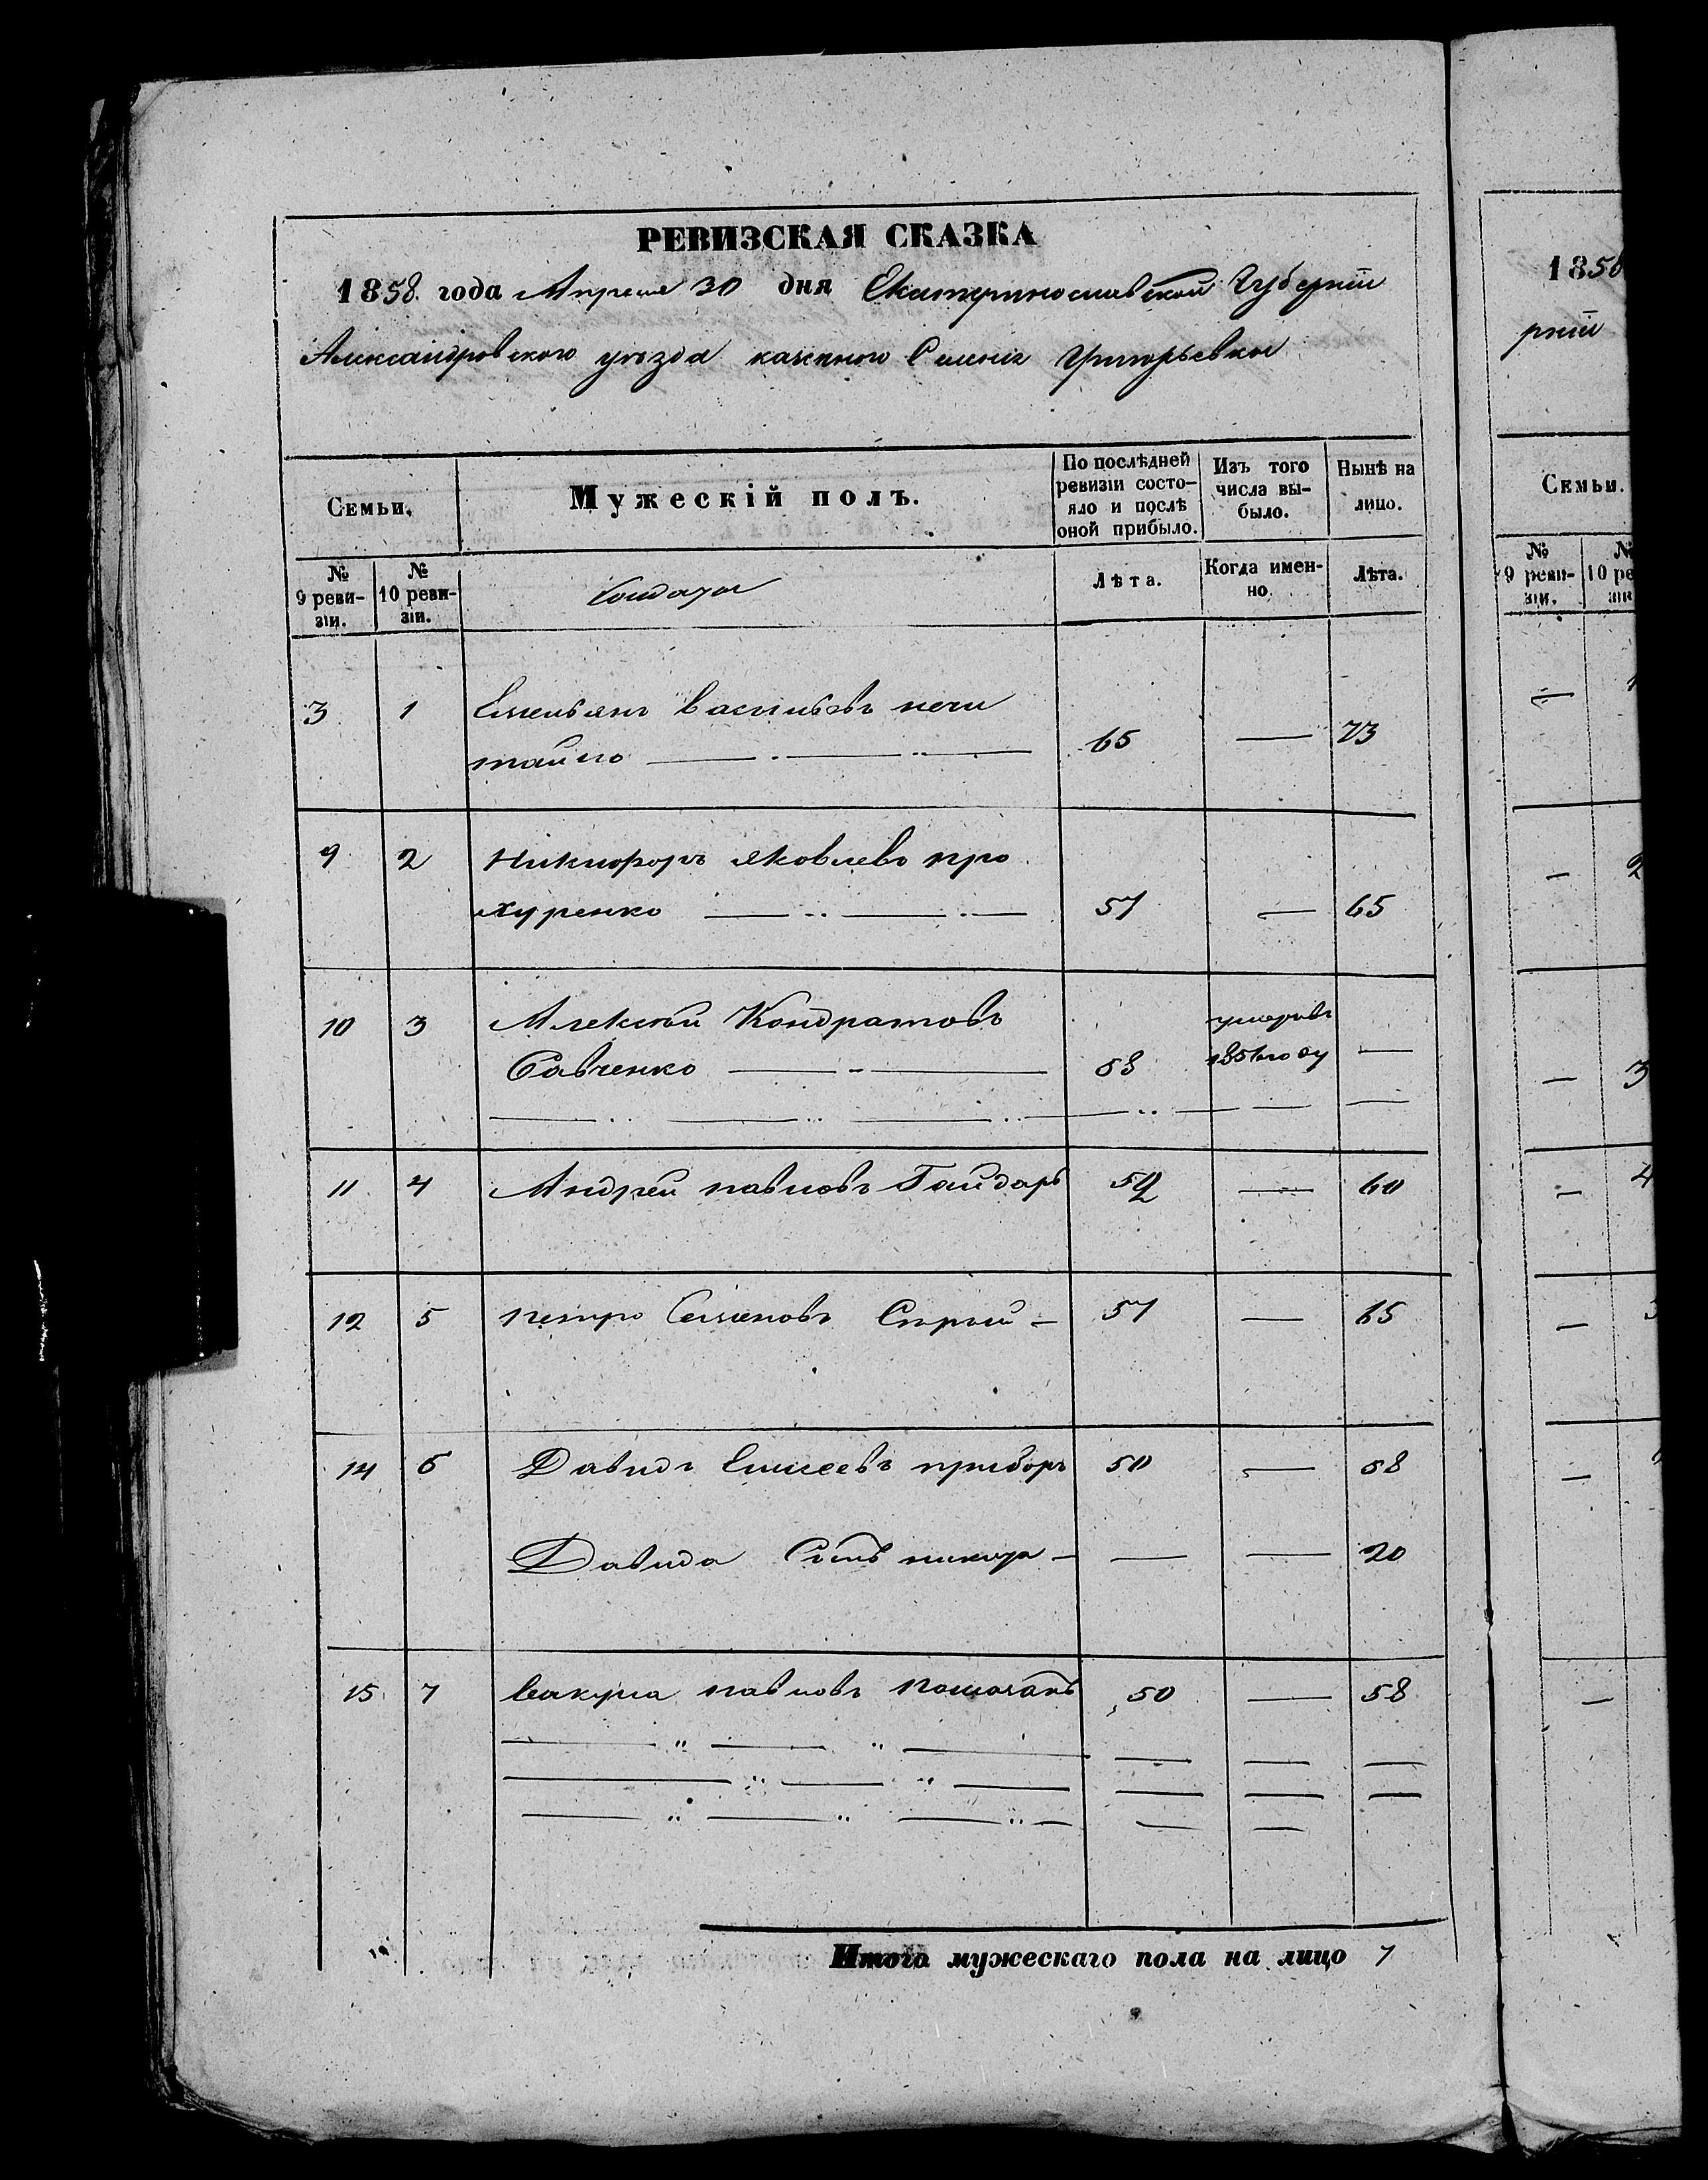 РЕВИЗСКАЯ СКАЗКА
1858 года Апреля 30 дня Екатеринославской Губерніи
Александровского уезда казенного Селенія Григорьевки
Семьи.
Мужескій полъ.
По послѣдней ревизіи состо-
яло и послѣ
оной прибыло.
Изъ того
числа вы-
было.
Нынѣ на
лицо.
№
9 реви-
зіи.
№
10 реви-
зіи.
Солдаты
Лѣта.
Когда имен-
но.
Лѣта.
3 1 Емельянъ васильевъ нечи
тайло 65 — 73
9 2 Никифоръ яковлевъ про
хуренко 57 — 65
10 3 Алексей Кондратовъ умеръ въ
Савченко 58 1851 году —
11 4 Андрей павловъ Гайдаръ 52 — 60
12 5 петро Семеновъ 57 — 65
14 6 Давидъ Елисеевъ 50 — 58
Давида Сынъ — — 20
15 7 вакула павловъ 50 — 58
Итого мужескаго пола на лицо 7
1858
рніи
Семьи.
№
9 реви-
зіи.
№
2
3
4